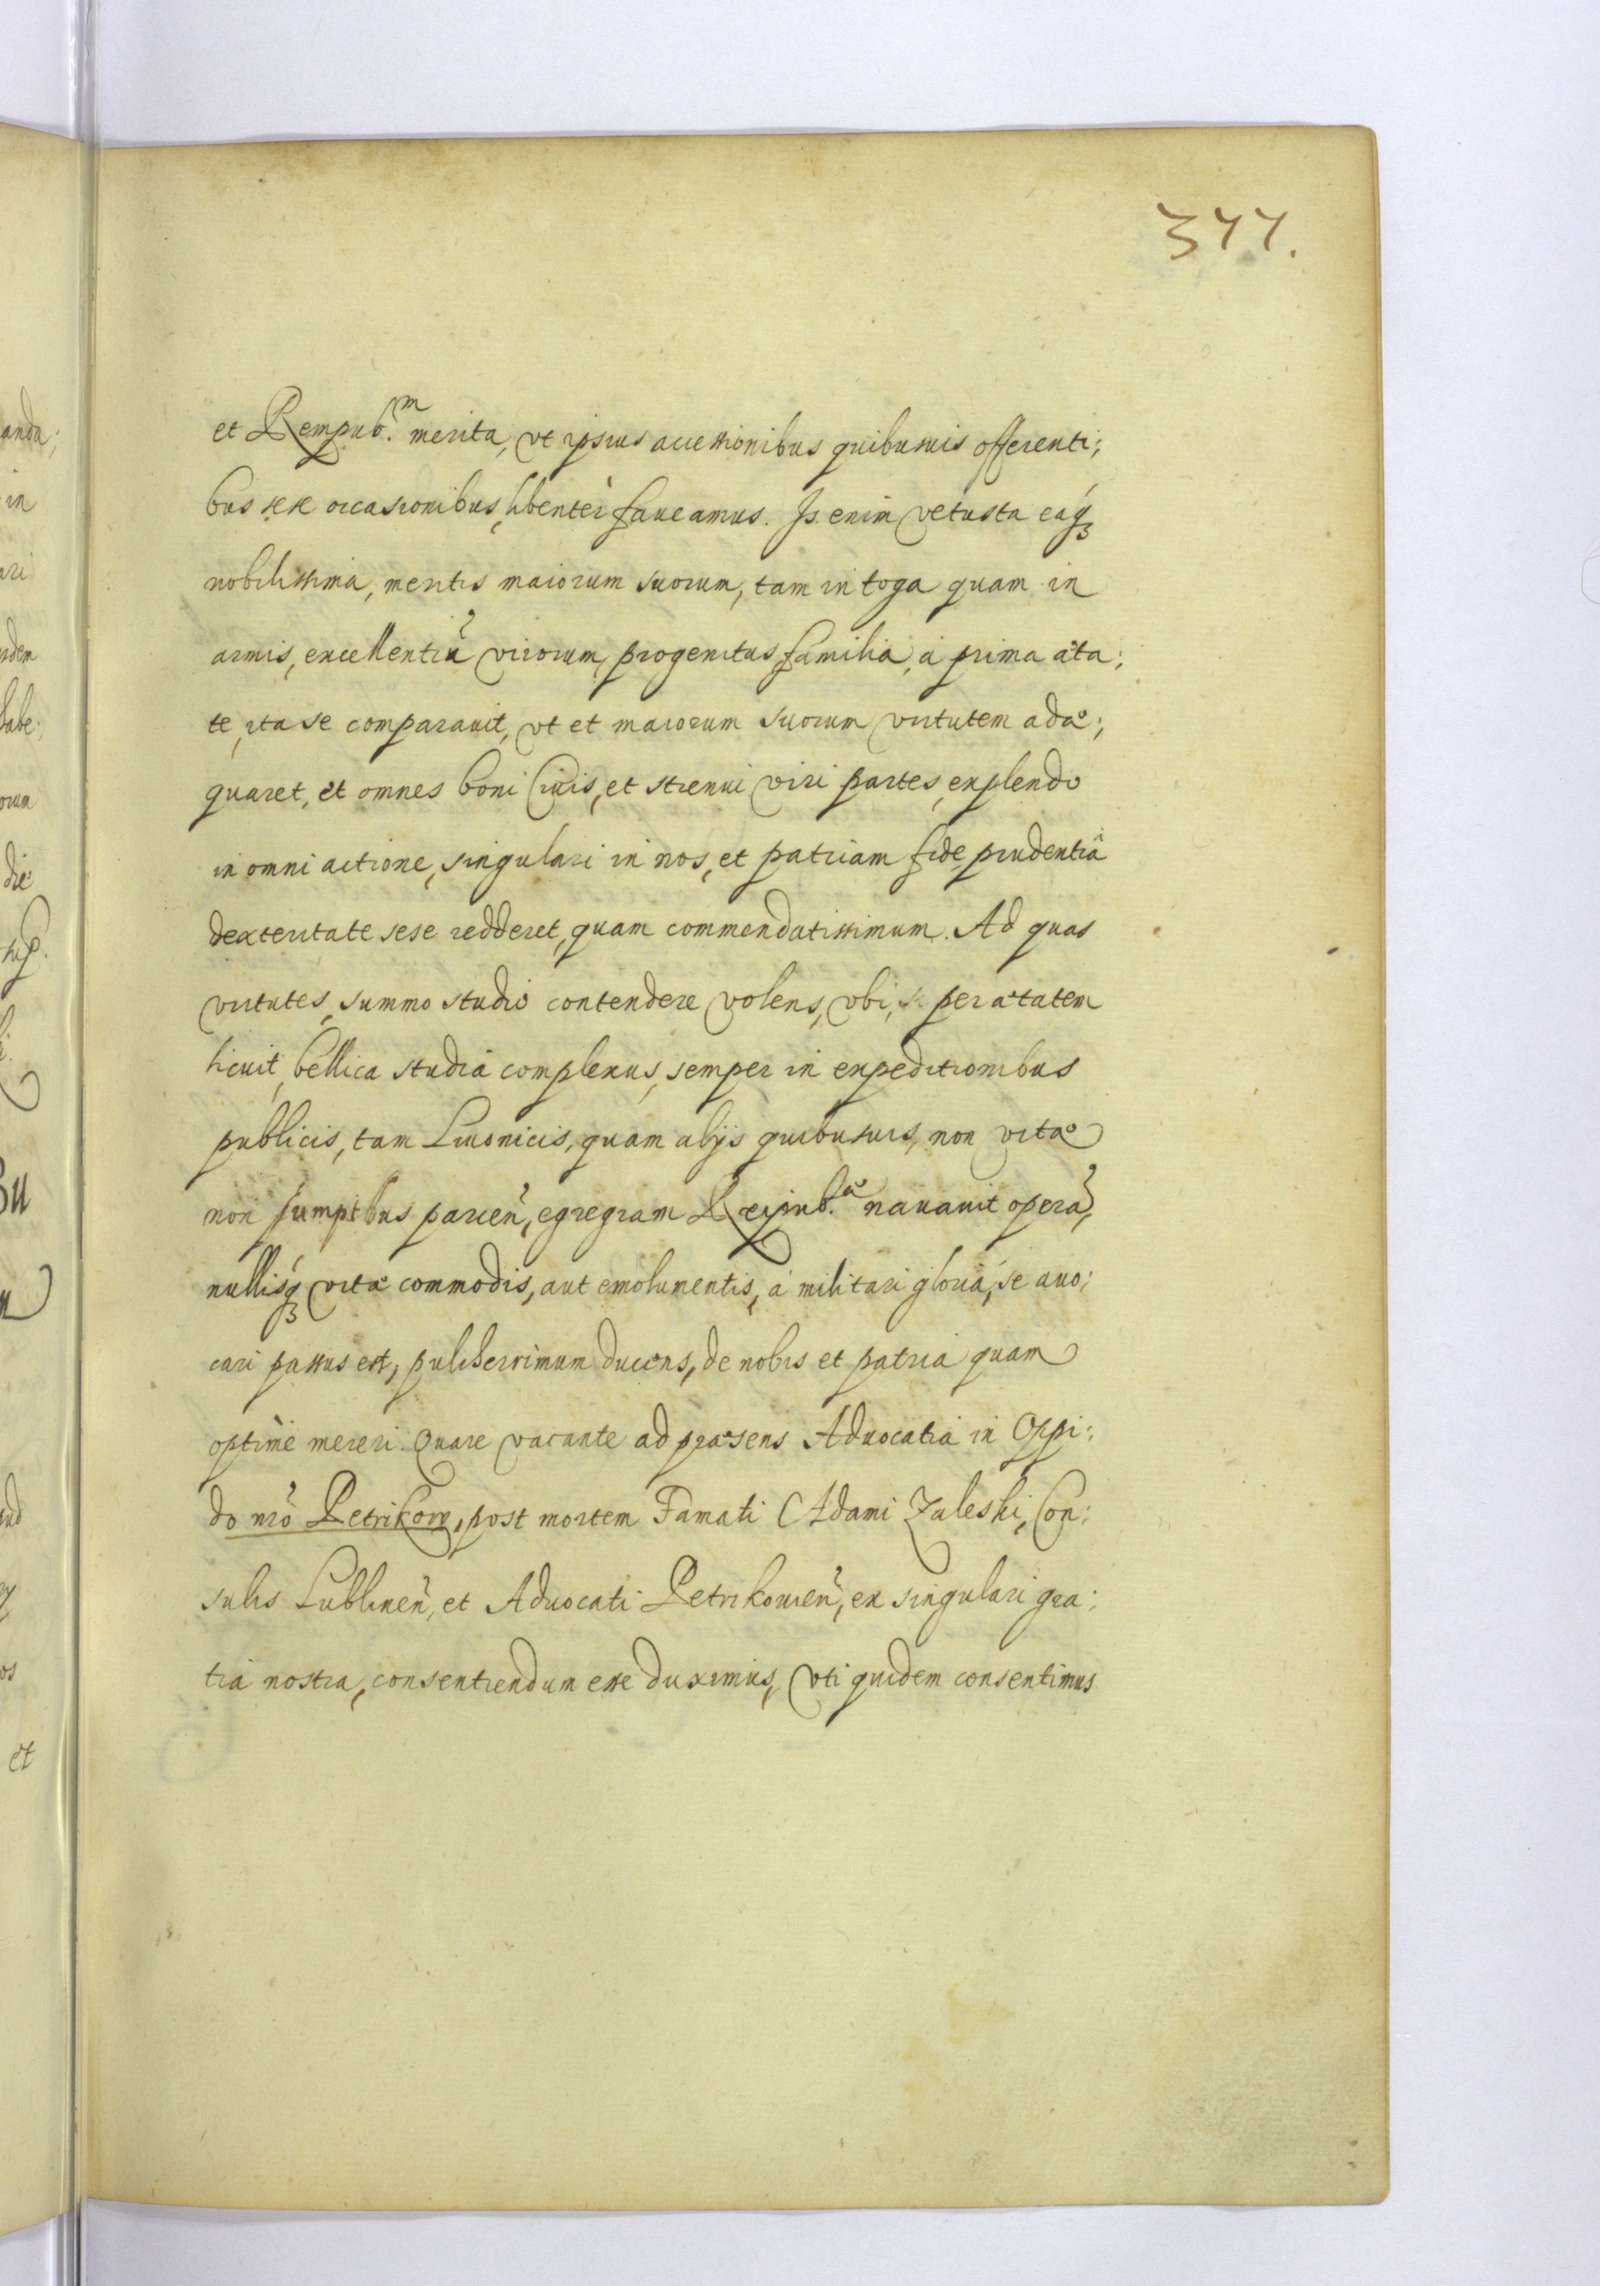 377.
et Rempub.m merita, vt ipsius accessionibus quibusuis offerenti;
bus sese occasionibus, libentèr faueamus. Is enim vetusta eaq́ꝫ
nobilissima, meritis maiorum suorum, tam in toga quam in
armis, excellentiũ virorum, progenitus familia, à prima æta;
te, ita se comparauit, vt et maiorum suorum virtutem adæ;
quaret, et omnes boni Ciuis, et strenui viri partes, explendo
in omni actione, singulari in nos, et patriam fide, prudentiâ
dexteritate sese redderet, quam commendatissimum. Ad quas
virtutes, summo studio contendere volens, vbi, per ætatem
licuit, bellica studia complexus, semper in expeditionibus
publicis, tam Liuonicis, quam alijs quibusuis, non vitæ
non sumptibus parceñ, egregiam Reipub.æ nauauit operã,
nullisq́ꝫ vitæ commodis, aut emolumentis, à militari gloria, se auo;
cari passus est, pulcherrimum ducens, de nobis et patria quam
optimè mereri. Quare vacante ad præsens Aduocatia in Oppi:
do nr̃o Petrikow, post mortem Famati Adami Zaleski, Con:
sulis Lublineñ, et Aduocati Petrikouieñ, ex singulari gra:
tia nostra, consentiendum esse duximus, vti quidem consentimus